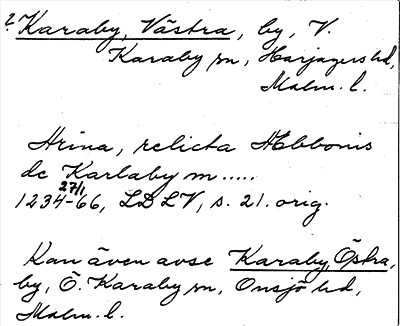 ? Karaby, Västra, by, V.
Karaby sn, Harjagers hd,
Malm. l.
Hrina, relicta Hebbonis
de Karlaby m.....
27/1
1234-66, LDLV, s. 21. orig.
Kan även avse Karaby, Östra,
by, Ö. Karaby sn, Onsjö hd,
Malm. l.